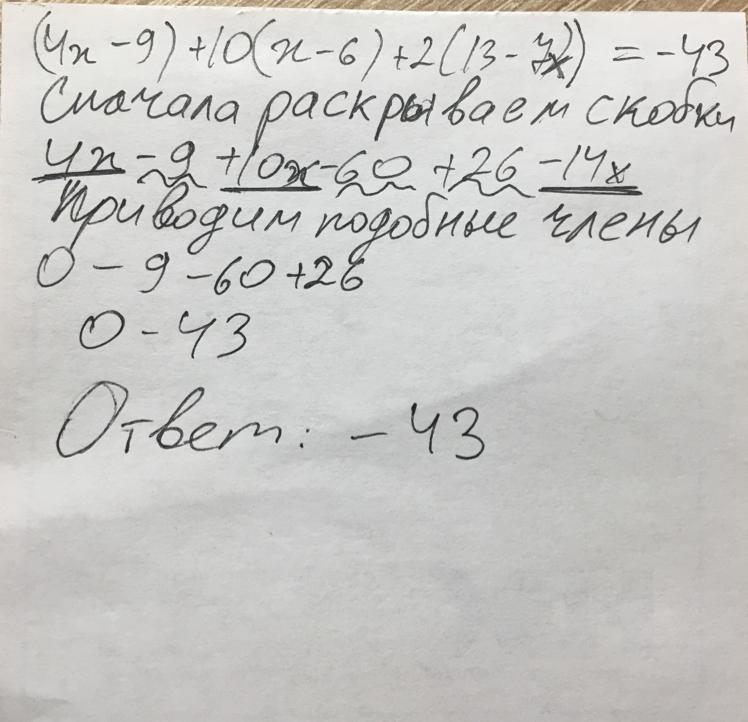 (4x-9)+10(x-6)+2(13-7x)) = -43
Сначала раскрываем скобки
4x-9+10x-60+26-14x
Приводим подобные члены
0-9-60+26
0-43
Ответ: -43